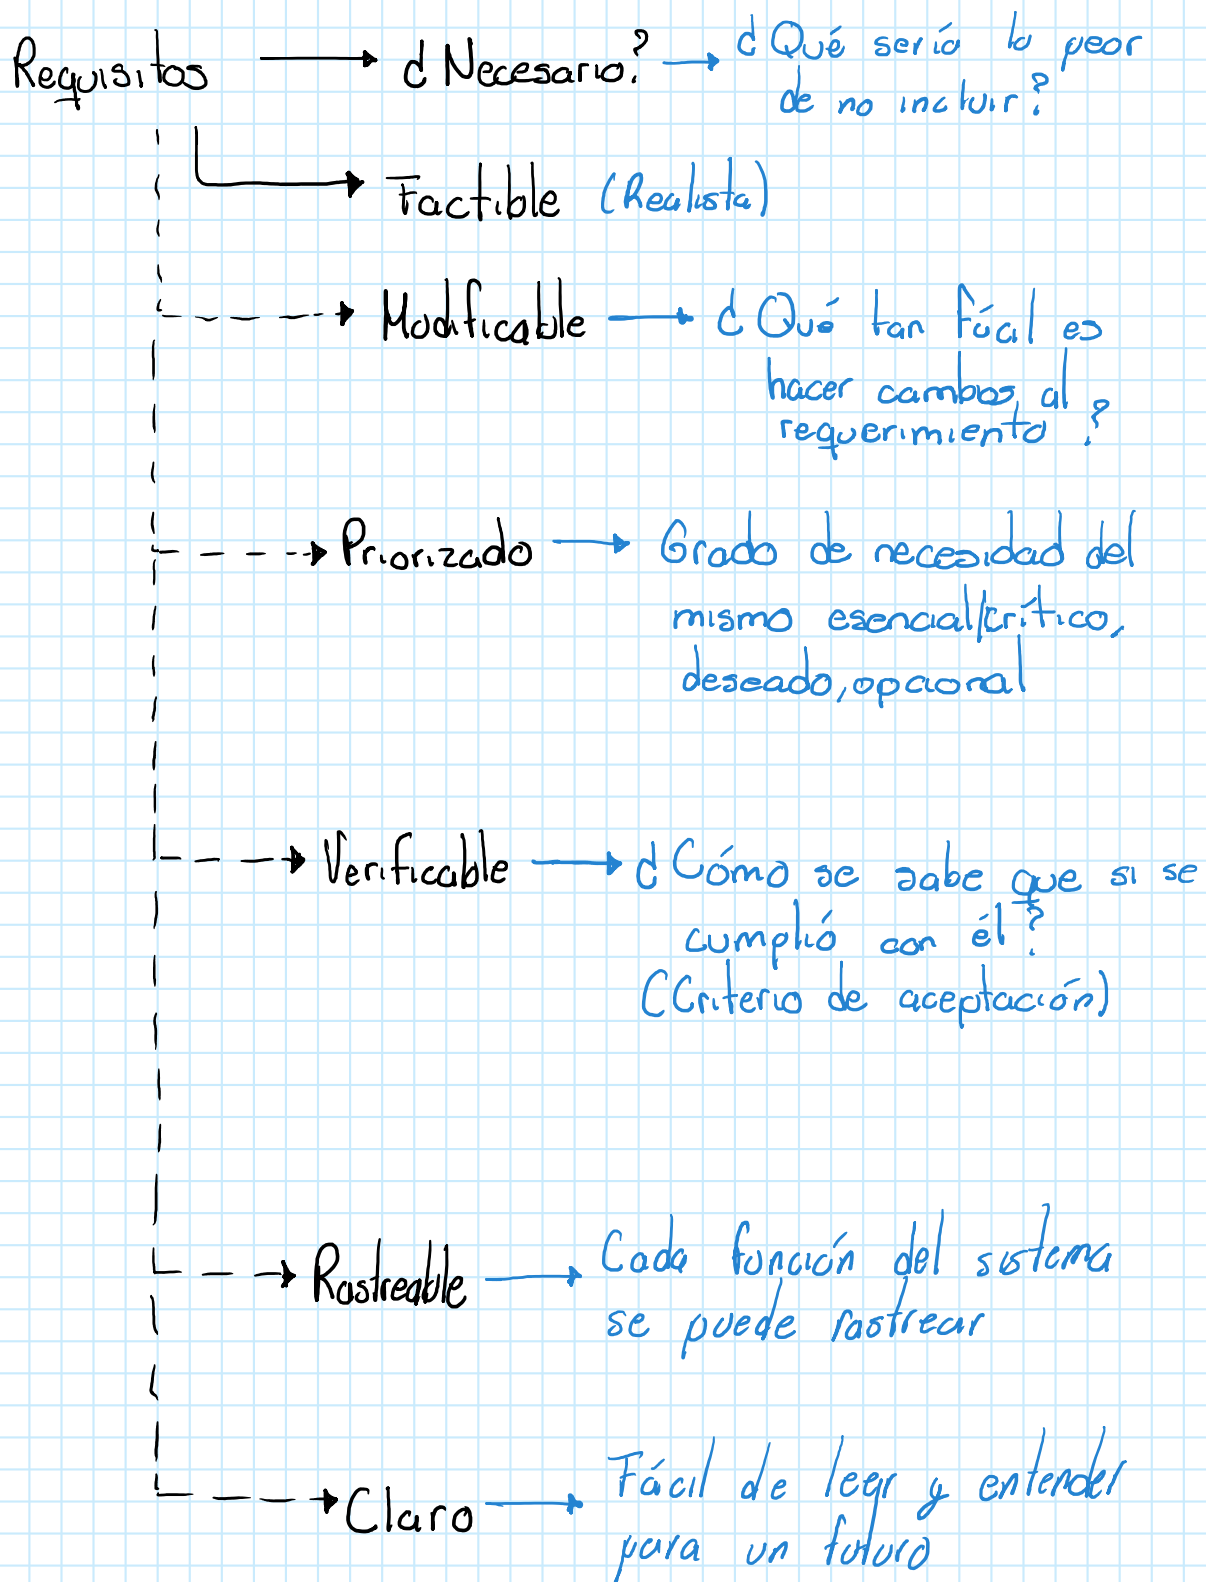 Requisitos → ¿Necesario? → ¿Qué sería lo peor
de no incluir?
→ Factible (Realista)
→ Modificable → ¿Qué tan fácil es
hacer cambios al
requerimiento?
→ Priorizado → Grado de necesidad del
mismo esencial/crítico,
deseado, opcional
→ Verificable → ¿Cómo se sabe que si se
cumplió con él?
(Criterio de aceptación)
→ Rastreable → Cada función del sistema
se puede rastrear
→ Claro → Fácil de leer y entender
para un futuro